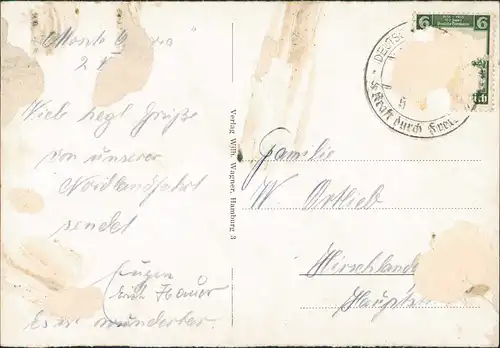 "Monte
2
Viele herzl. Grüße
von unserer
Nordlandfahrt
sendet
Eugen
Erich Hauser
Es ist wunderbar.
Verlag Wilh. Wagner, Hamburg 3
6
6
DEUTSCHE
Kraft durch Freude
Familie
W. Ortlieb
Hirschlanden